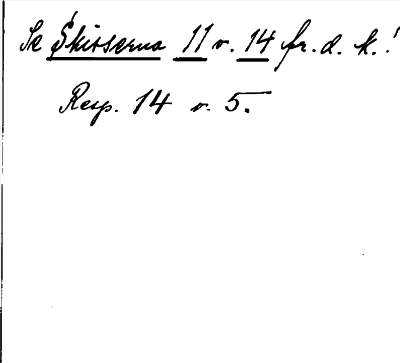 Se Skisserna 11 v. 14 fr. d. k.!
Resp. 14 v. 5.